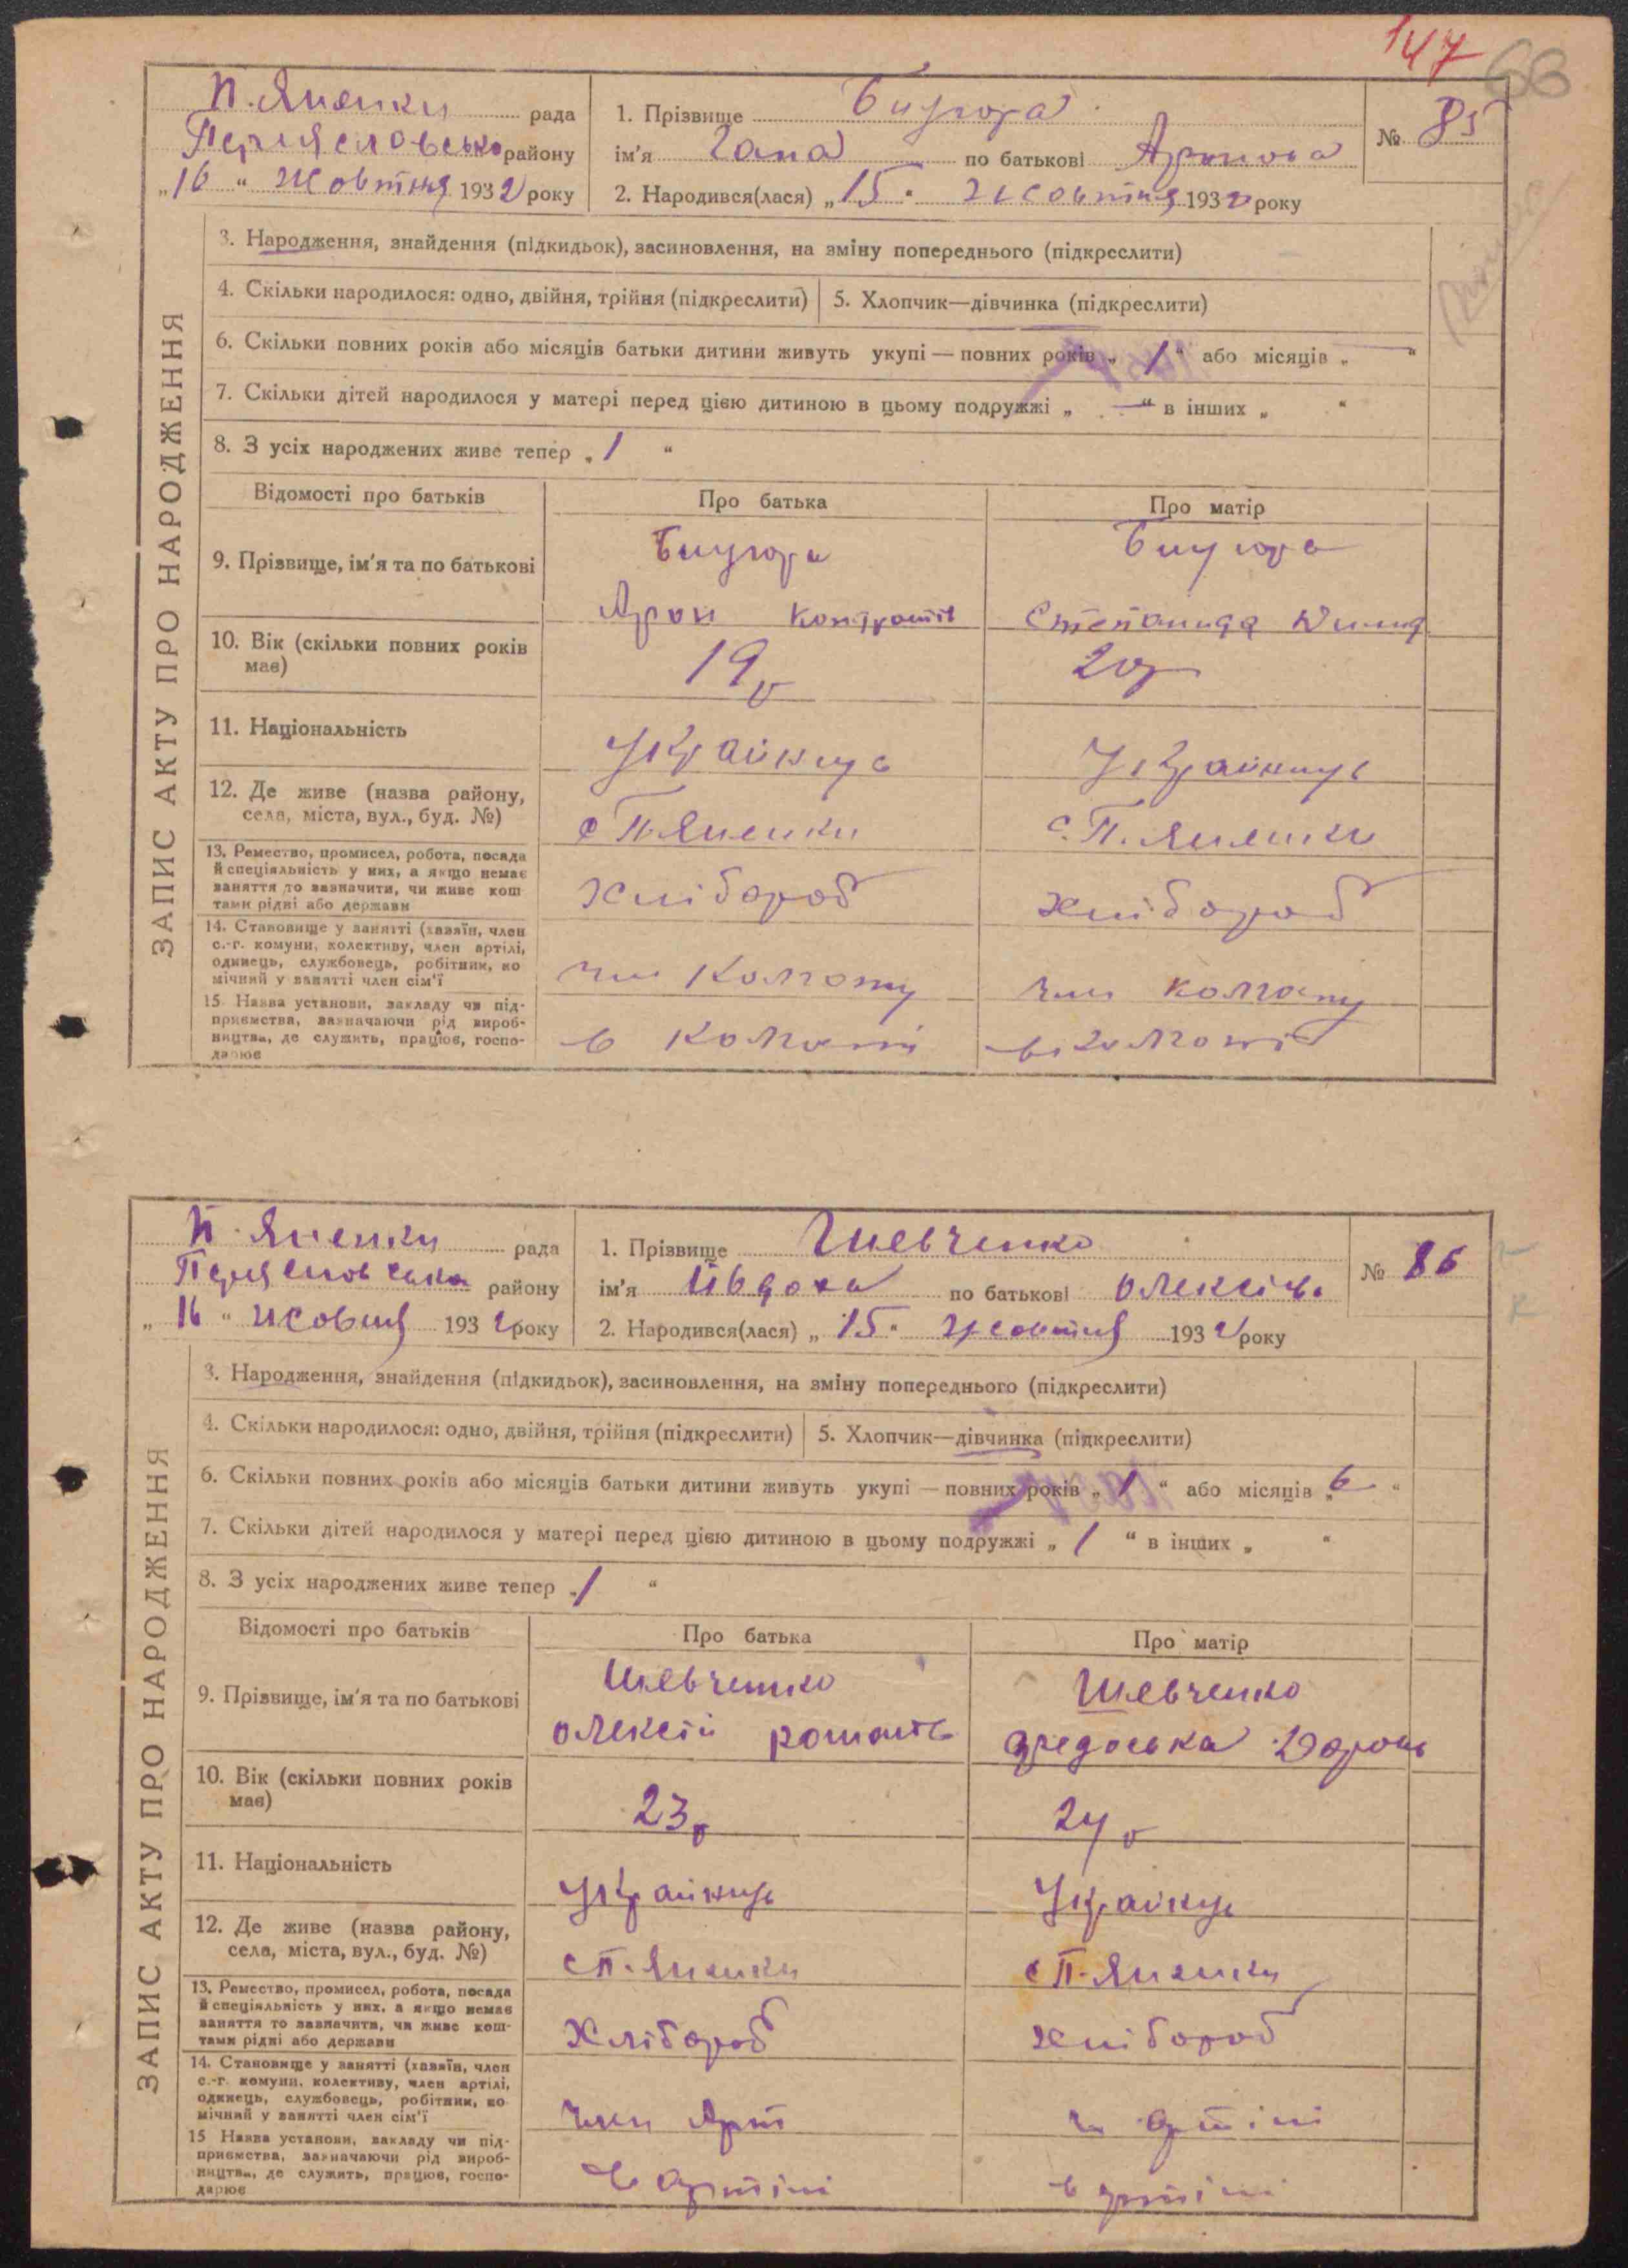 147
68
П. Яненки рада
Переяславсько району
„16“ жовтня 1932 року
1. Прізвище
ім'я Гана по батькові Архипова
2. Народився(лася) „15“ жовтня 1932 року
№ 85
ЗАПИС АКТУ ПРО НАРОДЖЕННЯ
3. Народження, знайдення (підкидьок), засиновлення, на зміну попереднього (підкреслити)
4. Скільки народилося: одно, двійня, трійня (підкреслити)
5. Хлопчик—дівчинка (підкреслити)
6. Скільки повних років або місяців батьки дитини живуть укупі — повних років „1“ або місяців „—“
7. Скільки дітей народилося у матері перед цією дитиною в цьому подружжі „—“ в інших „ “
8. З усіх народжених живе тепер „1“
Відомості про батьків
Про батька
Про матір
9. Прізвище, ім'я та по батькові
Степанида
10. Вік (скільки повних років
має)
19
20р
11. Національність
Українць
Українць
12. Де живе (назва району,
села, міста, вул., буд. №)
с П. Яненки
с. П. Яненки
13. Ремество, промисел, робота, посада
й спеціяльність у них, а якщо немає
заняття то зазначити, чи живе кош
тами рідні або держави
Хлібороб
хлібороб
14. Становище у занятті (хазяїн, член
с.-г. комуни, колективу, член артілі,
одинець, службовець, робітник, по
мічний у занятті член сім'ї
чл колгоспу
член колгоспу
15 Назва установи, закладу чи під-
приємства, зазначаючи рід вироб-
ництва, де служить, працює, госпо-
дарює
в колгоспі
в колгоспі
П. Яненки рада
району
„16“ жовтня 1932 року
1. Прізвище Шевченко
ім'я Йвдоха по батькові Олексієв.
2. Народився(лася) „15“ жовтня 1932 року
№ 86
ЗАПИС АКТУ ПРО НАРОДЖЕННЯ
3. Народження, знайдення (підкидьок), засиновлення, на зміну попереднього (підкреслити)
4. Скільки народилося: одно, двійня, трійня (підкреслити)
5. Хлопчик—дівчинка (підкреслити)
6. Скільки повних років або місяців батьки дитини живуть укупі — повних років „1“ або місяців „6“
7. Скільки дітей народилося у матері перед цією дитиною в цьому подружжі „1“ в інших „ “
8. З усіх народжених живе тепер „1“
Відомості про батьків
Про батька
Про матір
9. Прізвище, ім'я та по батькові
Шевченко
Олексій Романів
Шевченко
Хведоська
10. Вік (скільки повних років
має)
23
24
11. Національність
Українць
Українць
12. Де живе (назва району,
села, міста, вул., буд. №)
с П. Яненки
с П. Яненки
13. Ремество, промисел, робота, посада
й спеціяльність у них, а якщо немає
заняття то зазначити, чи живе кош-
тами рідні або держави
Хлібороб
хлібороб
14. Становище у занятті (хазяїн, член
с.-г. комуни, колективу, член артілі,
одинець, службовець, робітник, по
мічний у занятті член сім'ї
член Арт
ч артілі
15 Назва установи, закладу чи під-
приємства, зазначаючи рід вироб-
ництва, де служить, працює, госпо-
дарює
в артілі
в артілі